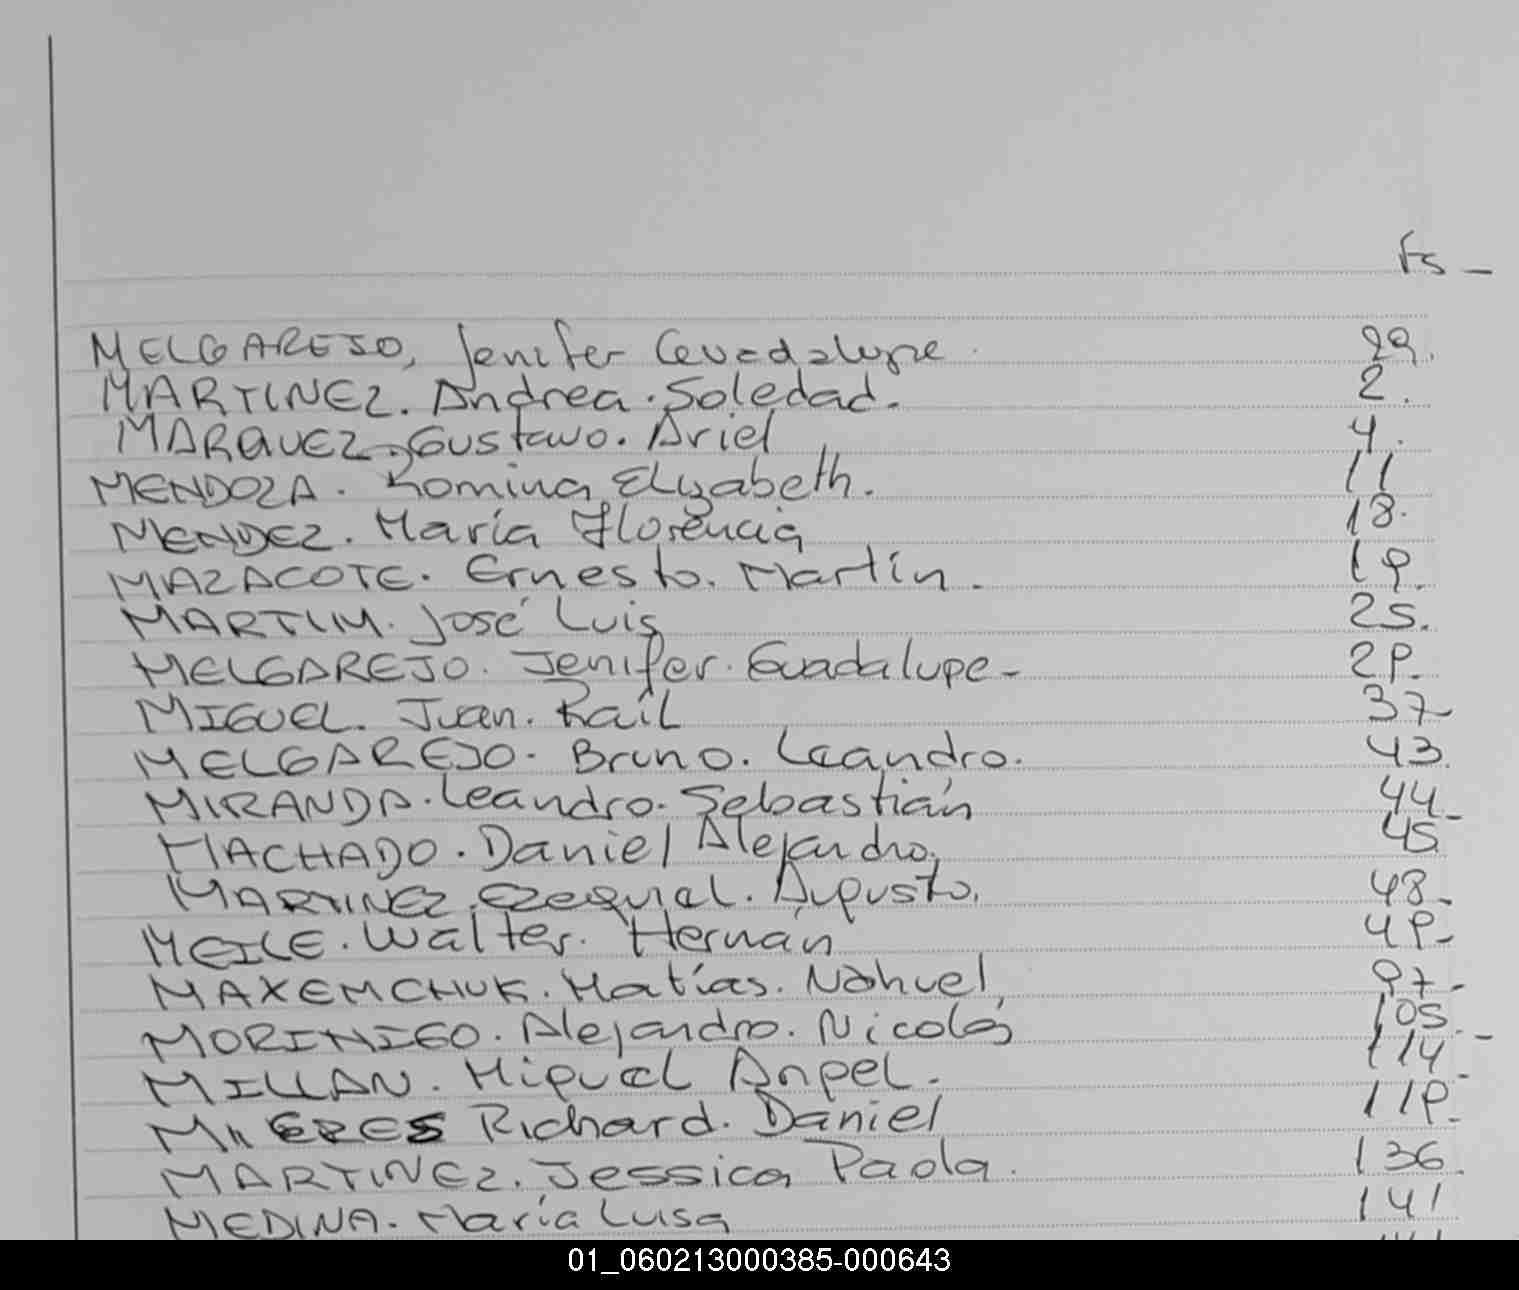 Fs_
MELGAREJO, Jenifer Guadalupe. 29.
MARTINEZ. Andrea. Soledad. 2.
MARQUEZ. Gustavo. Ariel 4.
MENDOZA. Romina Elizabeth. 11
MENDEZ. María Florencia 18.
MAZACOTE. Ernesto. Martín. 19.
MARTIM. José Luis 25.
MELGAREJO. Jenifer. Guadalupe - 29.
MIGUEL. Juan. Raúl 37-
MELGAREJO. Bruno. Leandro. 43.
MIRANDA. Leandro. Sebastián 44-
MACHADO. Daniel Alejandro, 45.
MARTINEZ. Ezequiel. Augusto. 48-
MEILE. Walter. Hernán 49-
MAXEMCHUK. Matías. Nahuel 97-
MORINIGO. Alejandro. Nicolás 105.-
MILLAN. Miguel Angel. 114-
MIERES Richard. Daniel 119-
MARTINEZ. Jessica Paola. 136.
MEDINA. María Lusa 141
01_060213000385-000643